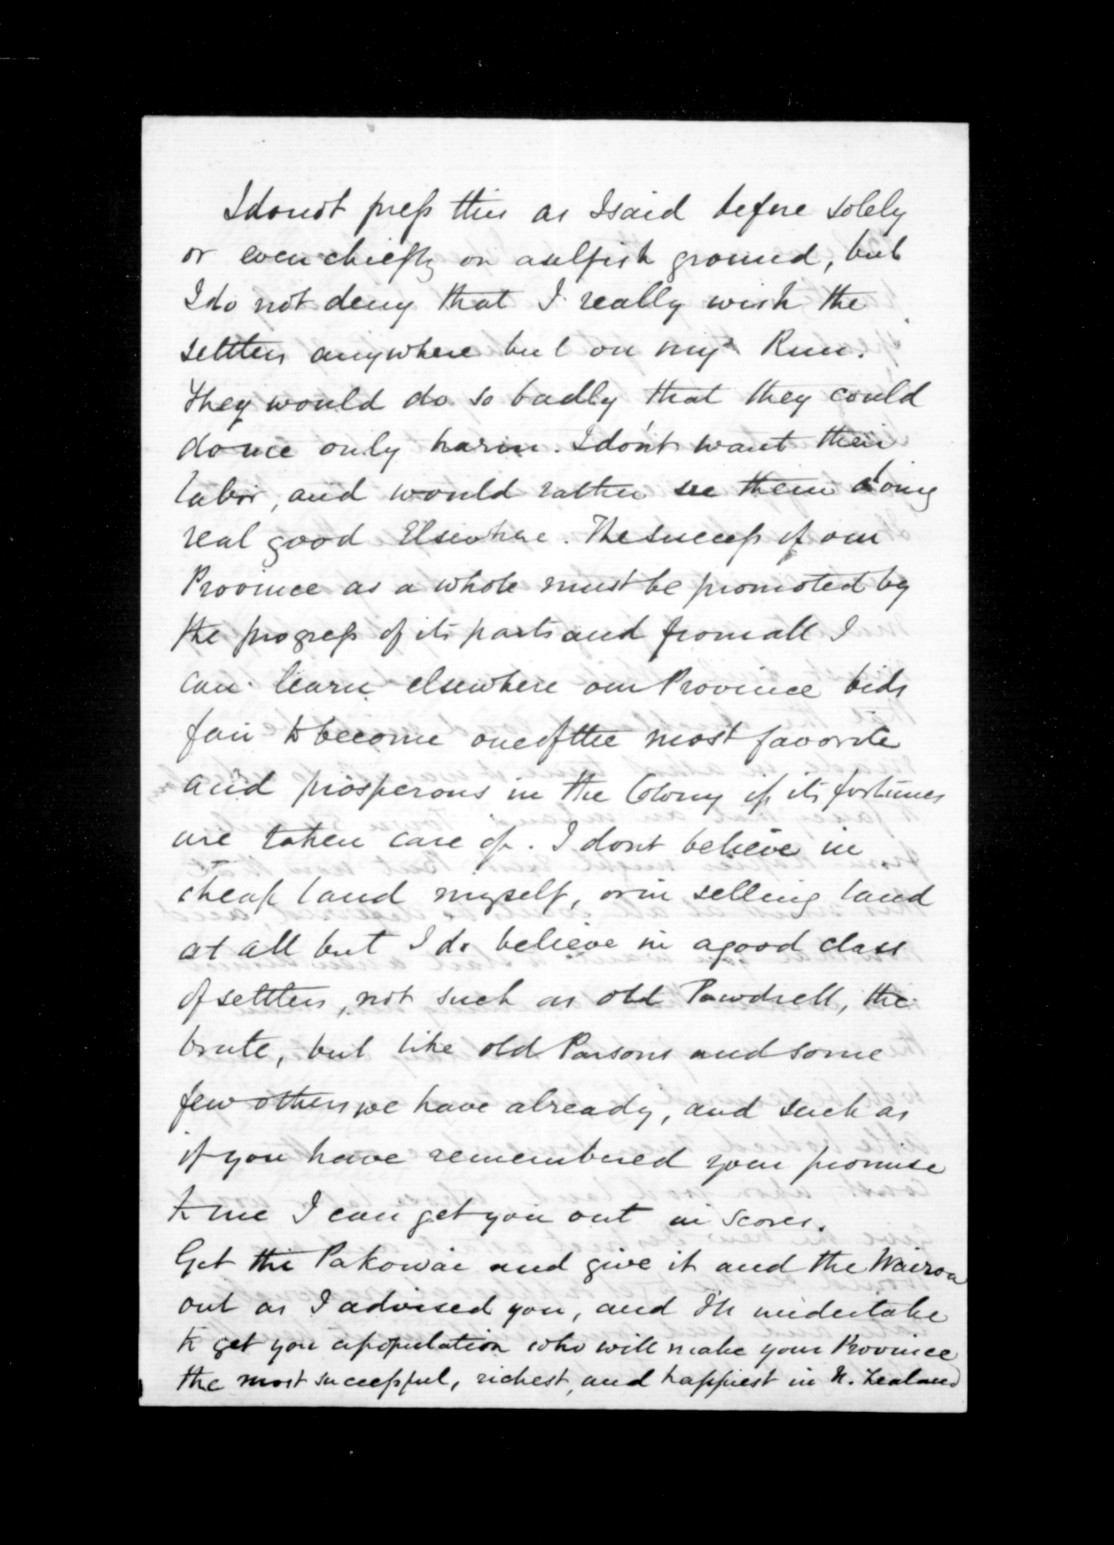 I do not press this as I said before solely
or even chiefly on a selfish ground, but
I do not deny that I really wish the
settlers anywhere but on my Run.
They would do so badly that they could
do me only harm. I don't want their
labor, and would rather see them doing
real good Elsewhere. The success of our
Province as a whole must be promoted by
the progress of its parts and from all I
can learn elsewhere our Province bids
fair to become one of the most favorite
and prosperous in the Colony if its fortunes
are taken care of. I dont believe in
cheap land myself, or in selling land
at all but I do believe in a good class
of settlers, not such as old Powdrell, the
brute, but like old Parsons and some
few others we have already, and such as
if you have remembered your promise
to me I can get you out in scores.
Get the Pakowai and give it and the Wairoa
out as I advised you, and I'll undertake
to get you a population who will make your Province
the most successful, richest, and happiest in N. Zealand